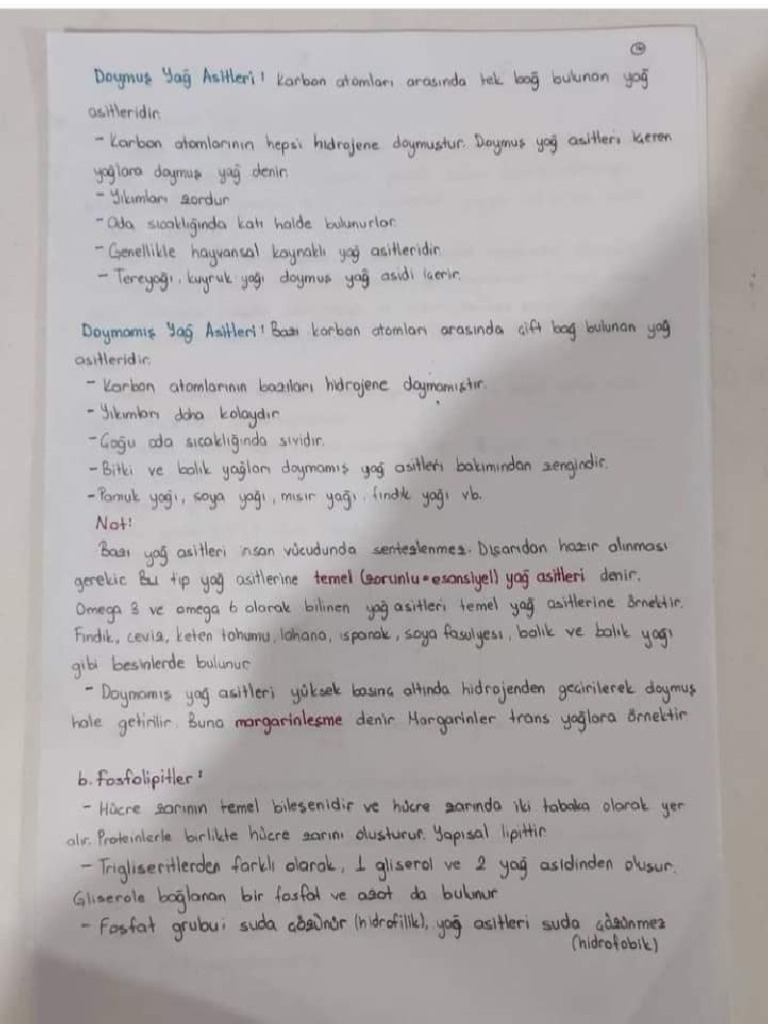 Doymuş Yağ Asitleri: Karbon atomları arasında tek bağ bulunan yağ
asitleridir.
- Karbon atomlarının hepsi hidrojene doymuştur. Doymuş yağ asitleri içeren
yağlara doymuş yağ denir.
- Yıkımları zordur
- Oda sıcaklığında katı halde bulunurlar.
- Genellikle hayvansal kaynaklı yağ asitleridir.
- Tereyağı, kuyruk yağı doymuş yağ asidi içerir.
Doymamış Yağ Asitleri: Bazı karbon atomları arasında çift bağ bulunan yağ
asitleridir.
- Karbon atomlarının bazıları hidrojene doymamıştır.
- Yıkımları daha kolaydır
- Çoğu oda sıcaklığında sıvıdır.
- Bitki ve balık yağları doymamış yağ asitleri bakımından zengindir.
- Pamuk yağı, soya yağı, mısır yağı, fındık yağı vb.
Not:
Bazı yağ asitleri insan vücudunda sentezlenmez. Dışarıdan hazır alınması
gerekir. Bu tip yağ asitlerine temel (zorunlu=esansiyel) yağ asitleri denir.
Omega 3 ve omega 6 olarak bilinen yağ asitleri temel yağ asitlerine örnektir.
Fındık, ceviz, keten tohumu, lahana, ıspanak, soya fasulyesi, balık ve balık yağı
gibi besinlerde bulunur
- Doymamış yağ asitleri yüksek basınç altında hidrojenden geçirilerek doymuş
hale getirilir. Buna margarinleşme denir. Margarinler trans yağlara örnektir
b. Fosfolipitler:
- Hücre zarının temel bileşenidir ve hücre zarında iki tabaka olarak yer
alır. Proteinlerle birlikte hücre zarını oluşturur. Yapısal lipittir
- Trigliseritlerden farklı olarak, 1 gliserol ve 2 yağ asidinden oluşur.
Gliserole bağlanan bir fosfat ve azot da bulunur
- Fosfat grubu; suda çözünür (hidrofilik), yağ asitleri suda çözünmez
(hidrofobik)